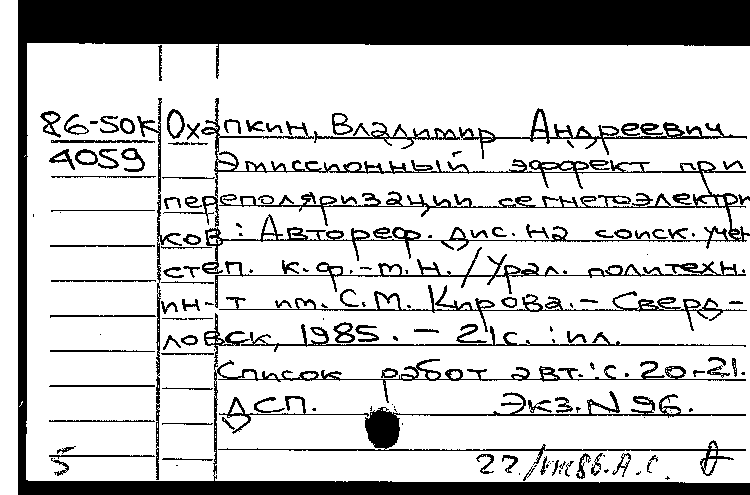 86-50К Охапкин, Владимир Андреевич
4059 Эмиссионный эффект при
переполяризации сегнетоэлектри
ков : Автореф. дис. на соиск. учен
степ. к.ф.-т.н. / Урал. политехн.
ин-т им. С.М. Кирова. - Сверд-
ловск, 1985. - 21с. : ил.
Список работ авт.: с. 20-21.
ДСП. Экз. N 96.
5 22/ 86. А.С.